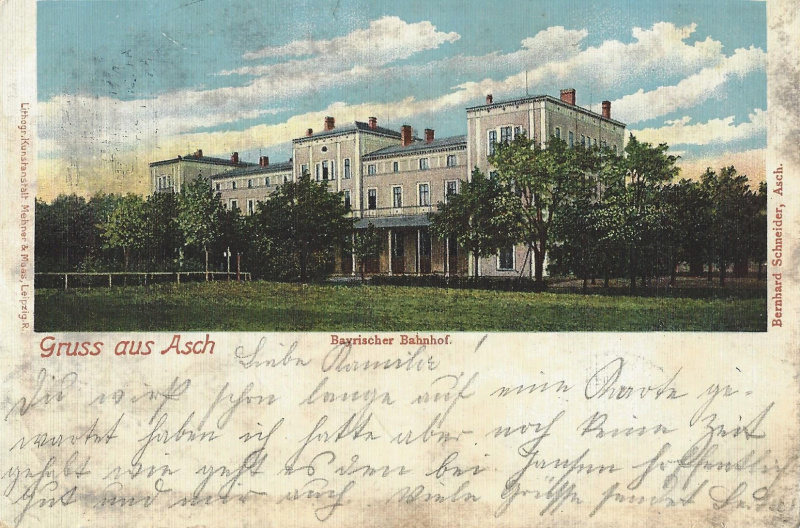 Lithogr. Kunstanstalt Mehner & Maas, Leipzig. R.
Bernhard Schneider, Asch.
Gruss aus Asch
Bayrischer Bahnhof.
Liebe Kamilie!
Du wirst schon lange auf eine Karte ge-
wartet haben ich hatte aber noch keine Zeit
gehabt wie geht es den bei hoffentlich
gut und mir auch. Viele Grüsse sendet